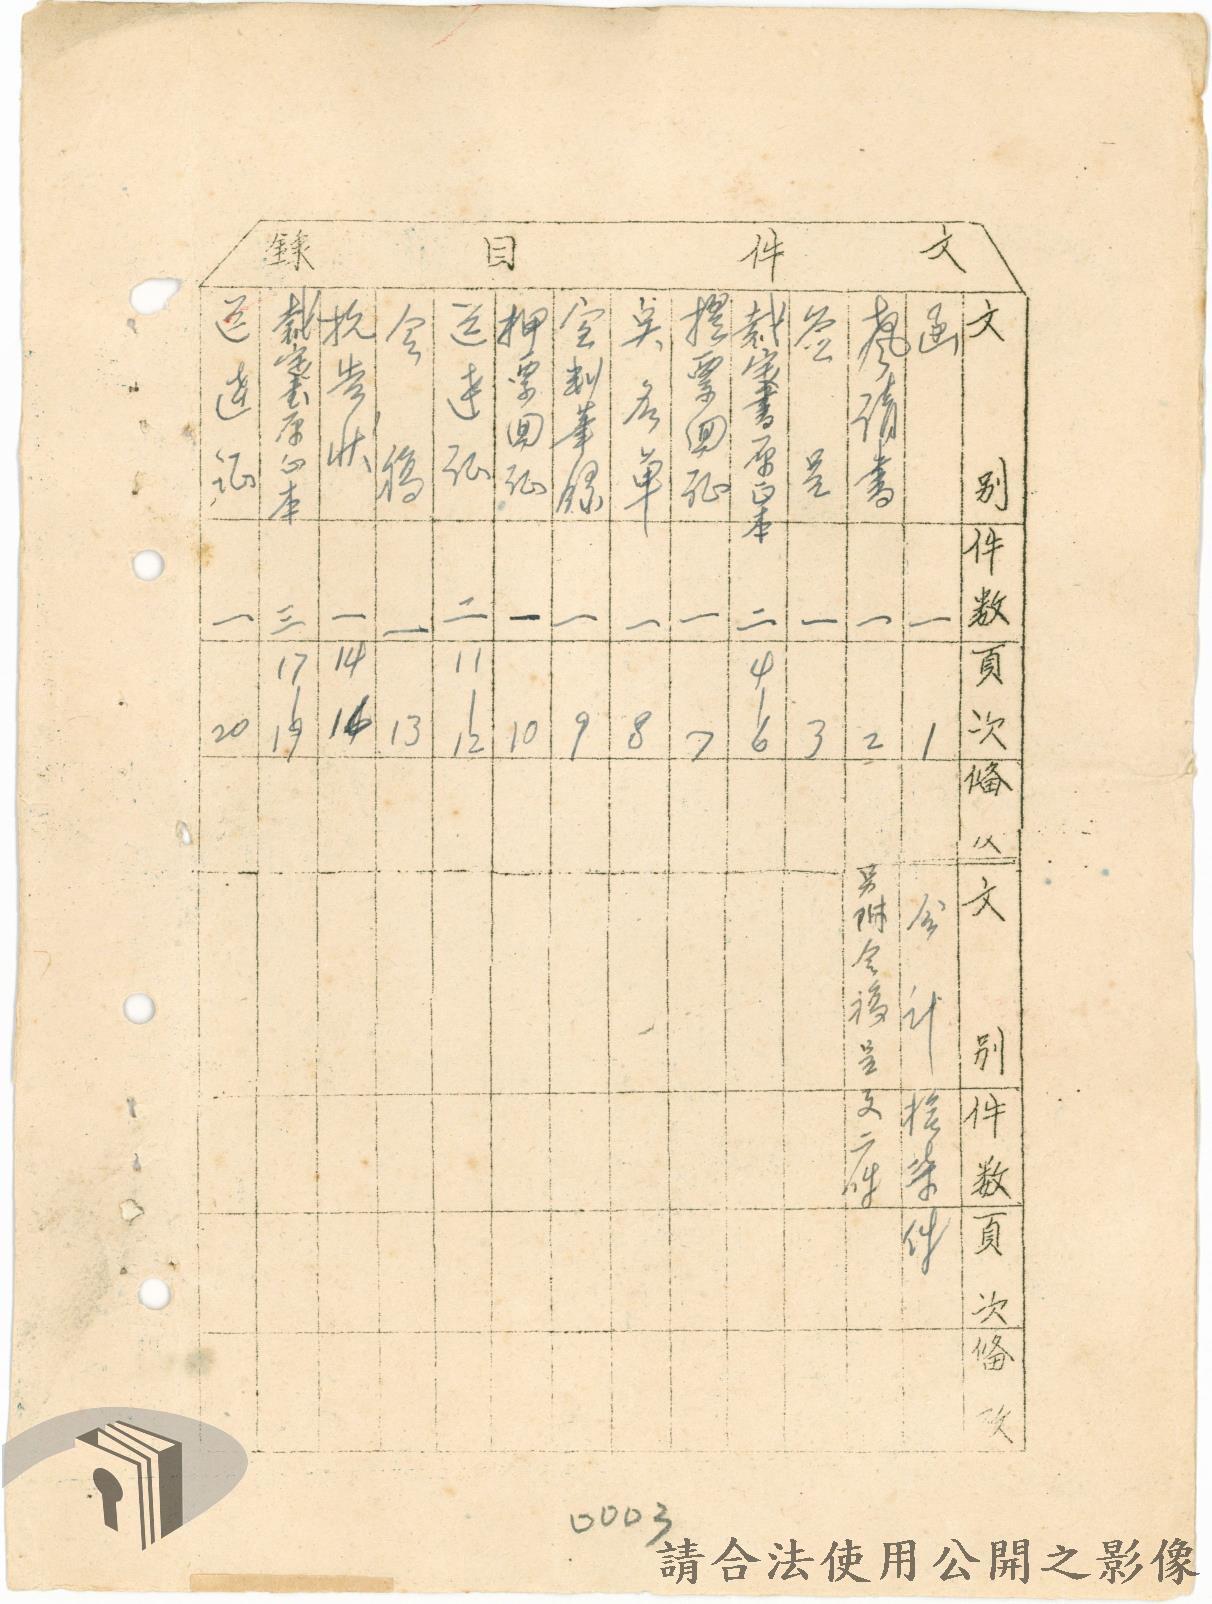 文件目錄
文別 件数 頁次 備攷
函 一 1
聲請書 一 2
签呈 一 3
裁定書原正本 二 4 | 6
提票回証 一 7
名单 一 8
宣判筆錄 一 9
押票回証 一 10
送達証 二 11 | 12
令稿 一 13
抗告狀 一 14 16
裁定書原正本 三 17 | 19
送達証 一 20
文別 件数 頁次 備攷
合計 拾柒件
另附令稿呈文二件
0003
請合法使用公開之影像